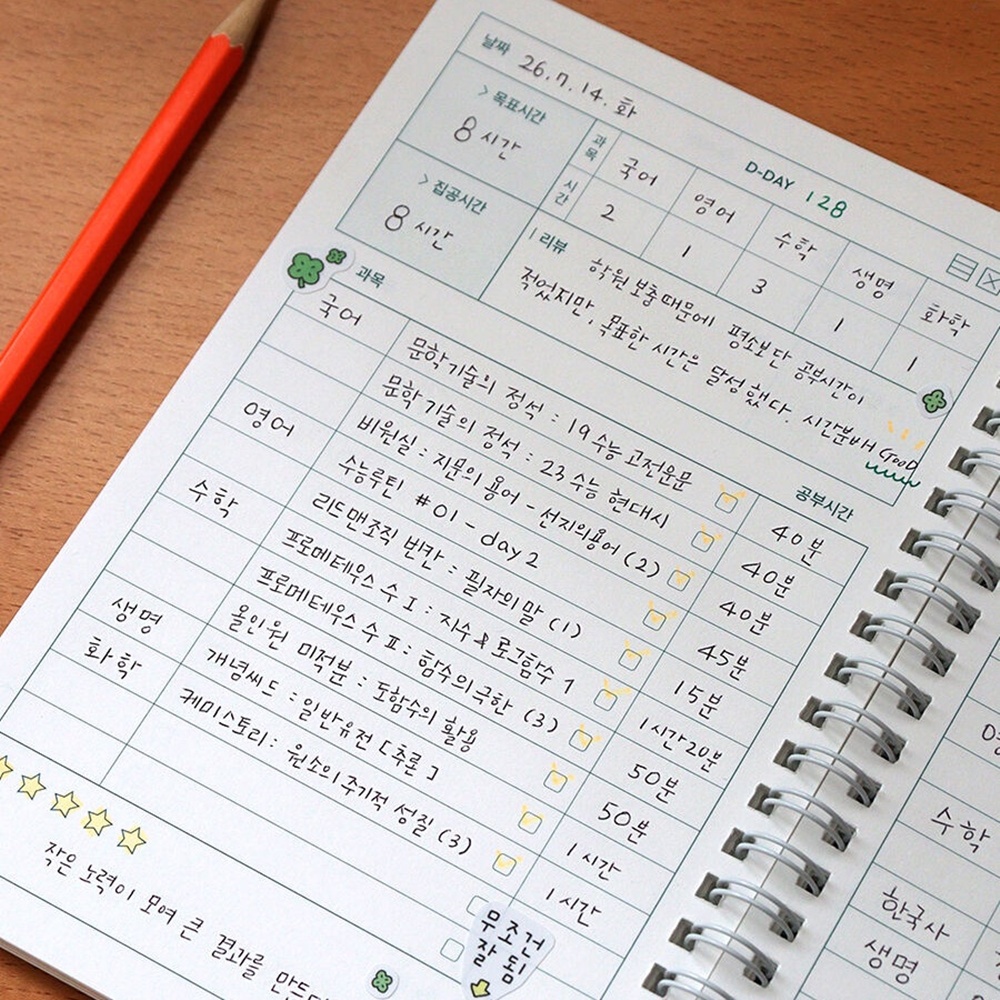 날짜 26. 7. 14. 화
> 목표시간
8 시간
> 집공시간
8 시간
D-DAY 128
과목 국어 영어 수학 생명 화학
시간 2 1 3 1 1
| 리뷰 학원 보충 때문에 평소보단 공부시간이
적었지만, 목표한 시간은 달성했다. 시간분배 GooD
과목 공부시간
국어 문학 기술의 정석 : 19 수능 고전운문 40분
문학 기술의 정석 : 23 수능 현대시 40분
비원실 : 지문의 용어 - 선지의 용어 (2) 45분
영어 수능루틴 #01 - day 2 15분
리드맨조직 빈칸 : 필자의 말 (1) 1시간 20분
수학 프로메테우스 수 I : 지수 & 로그함수 1 50분
프로메테우스 수 II : 함수의 극한 (3) 50분
올인원 미적분 : 도함수의 활용 1시간
생명 개념씨드 : 일반유전 [추론] 1시간
화학 케미스토리 : 원소의 주기적 성질 (3)
작은 노력이 모여 큰 결과를
무조건
잘 됨
수학
한국사
생명